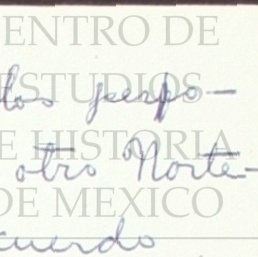 CENTRO DE
ESTUDIOS
DE HISTORIA
DE MEXICO
los perpo-
otro Norte-
cuerdo